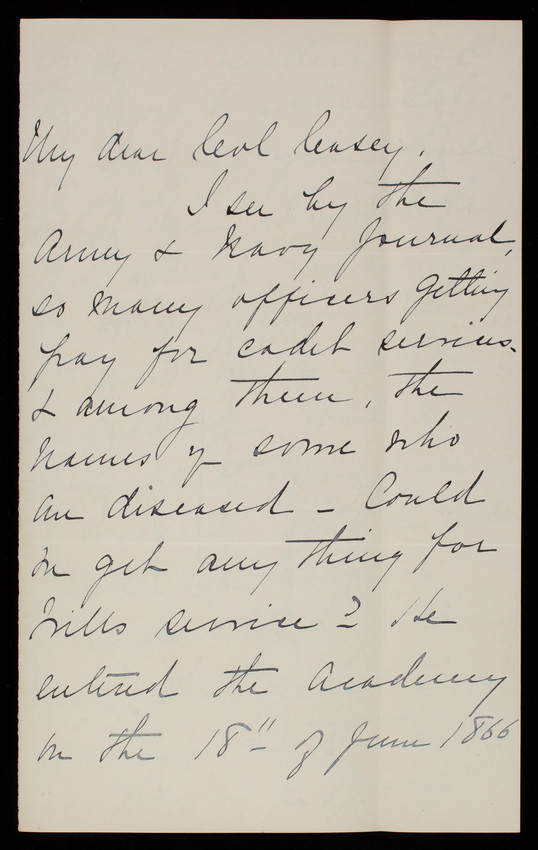 My dear Col Casey.
I see by the
Army & Navy Journal,
so many officers getting
pay for cadet services.
& among them, the
names of some who
are diseased – Could
we get any thing for
Willo service? He
entered the Academy
on the 18" of June 1866